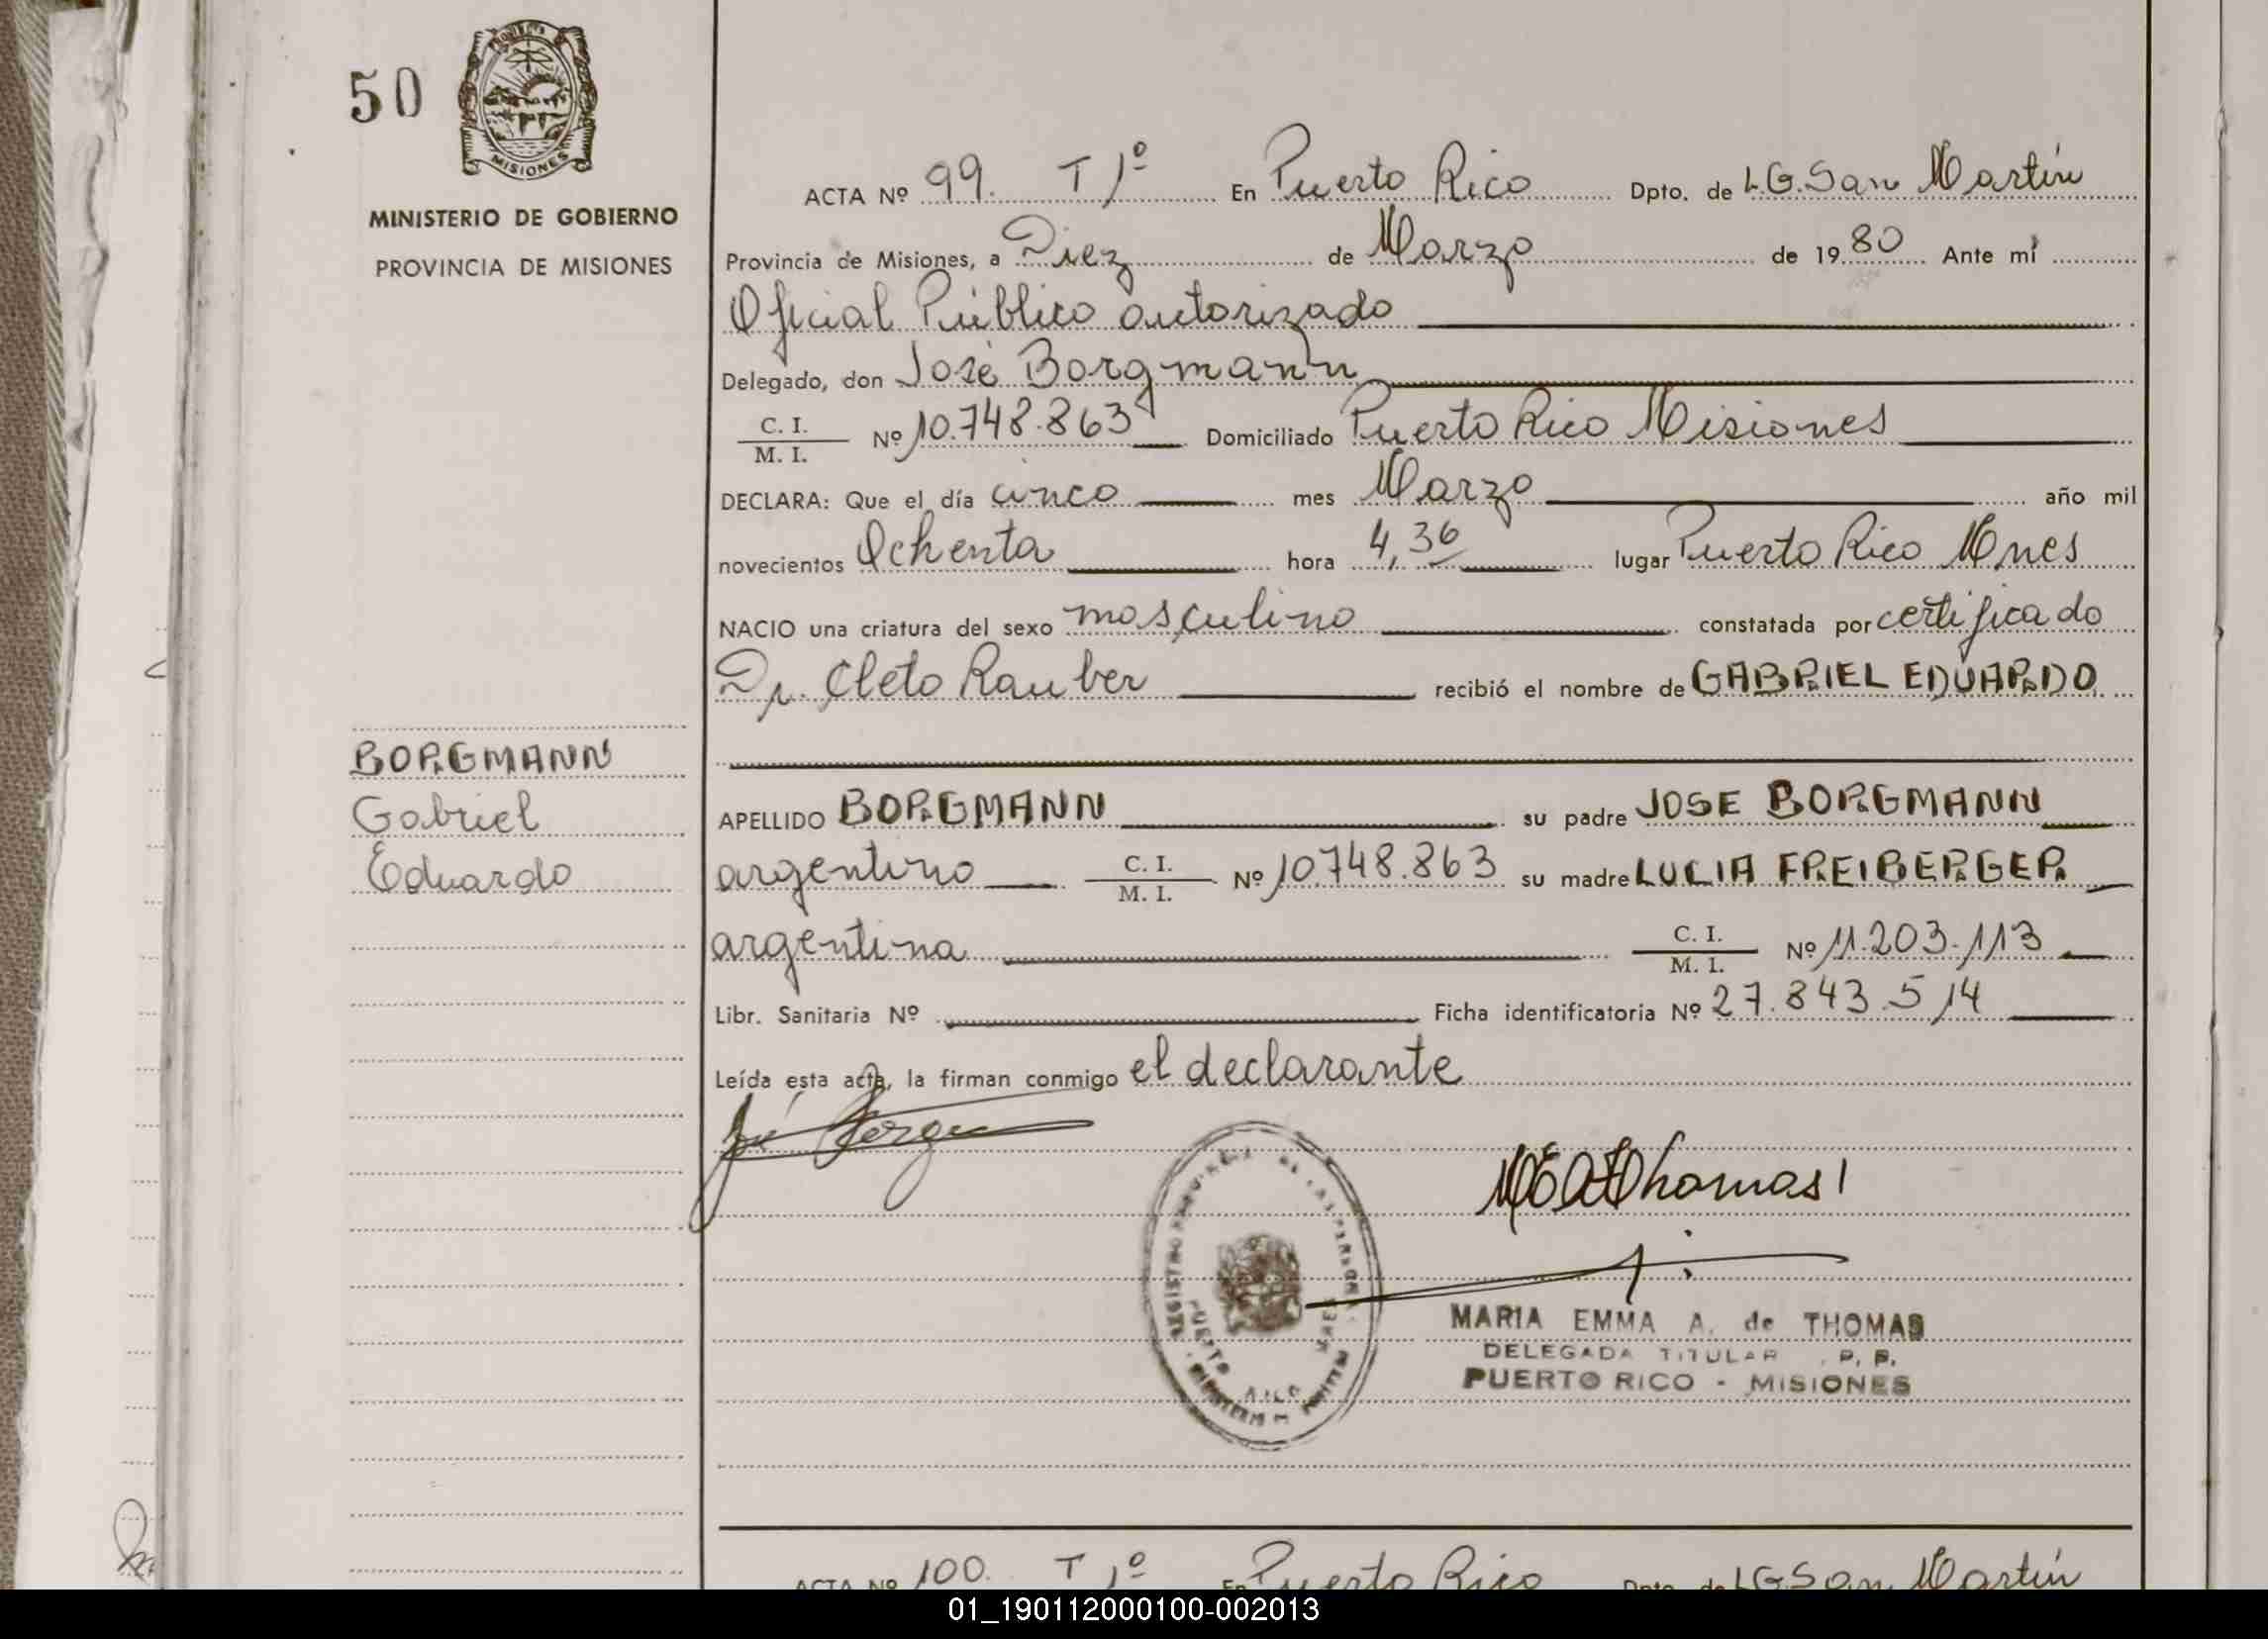 50
MISIONES
MINISTERIO DE GOBIERNO
PROVINCIA DE MISIONES
ACTA Nº 99. T 1º En Puerto Rico Dpto. de L.G.San Martín
Provincia de Misiones, a Diez de Marzo de 1980 Ante mí
Oficial Público autorizado
Delegado, don José Borgmann
C. I.
M. I. Nº 10.748.863 Domiciliado Puerto Rico Misiones
DECLARA: Que el día cinco mes Marzo año mil
novecientos Ochenta hora 4,36 lugar Puerto Rico Mnes
NACIO una criatura del sexo masculino constatada por certificado
Dr. Cleto Rauber recibió el nombre de GABRIEL EDUARDO
BORGMANN
Gabriel
Eduardo
APELLIDO BORGMANN su padre JOSE BORGMANN
argentino C. I.
M. I. Nº 10.748.863 su madre LUCIA FREIBERGER
argentina C. I.
M. I. Nº 11.203.113
Libr. Sanitaria Nº Ficha identificatoria Nº 27.843.514
Leída esta acta, la firman conmigo el declarante
MARIA EMMA A. de THOMAS
DELEGADA TITULAR P. P.
PUERTO RICO - MISIONES
ACTA Nº 100. T 1º En Puerto Rico Dpto. de LG San Martín
01_190112000100-002013